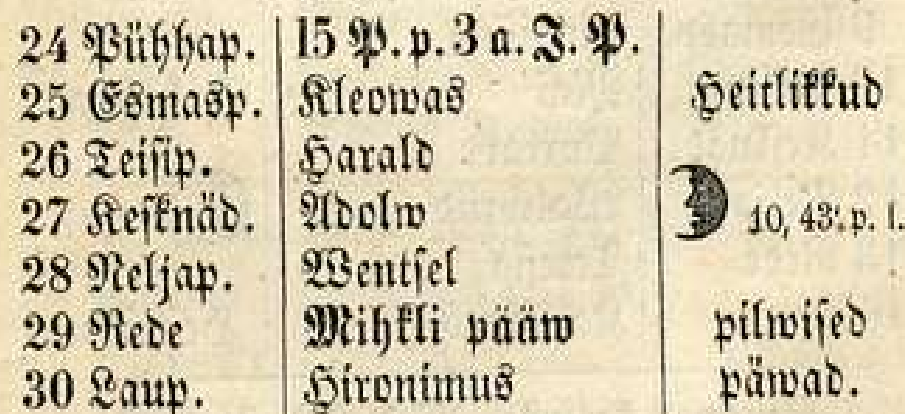 24 Pühhap. 15 P. p. 3 a. J. P.
25 Esmasp. Kleowas Heitlikkud
26 Teisip. Harald
27 Keskнäd. Adolw 10, 43'. p. l.
28 Neljap. Wentsel
29 Rede Mihkli pääw pilwised
30 Laup. Hironimus päwad.